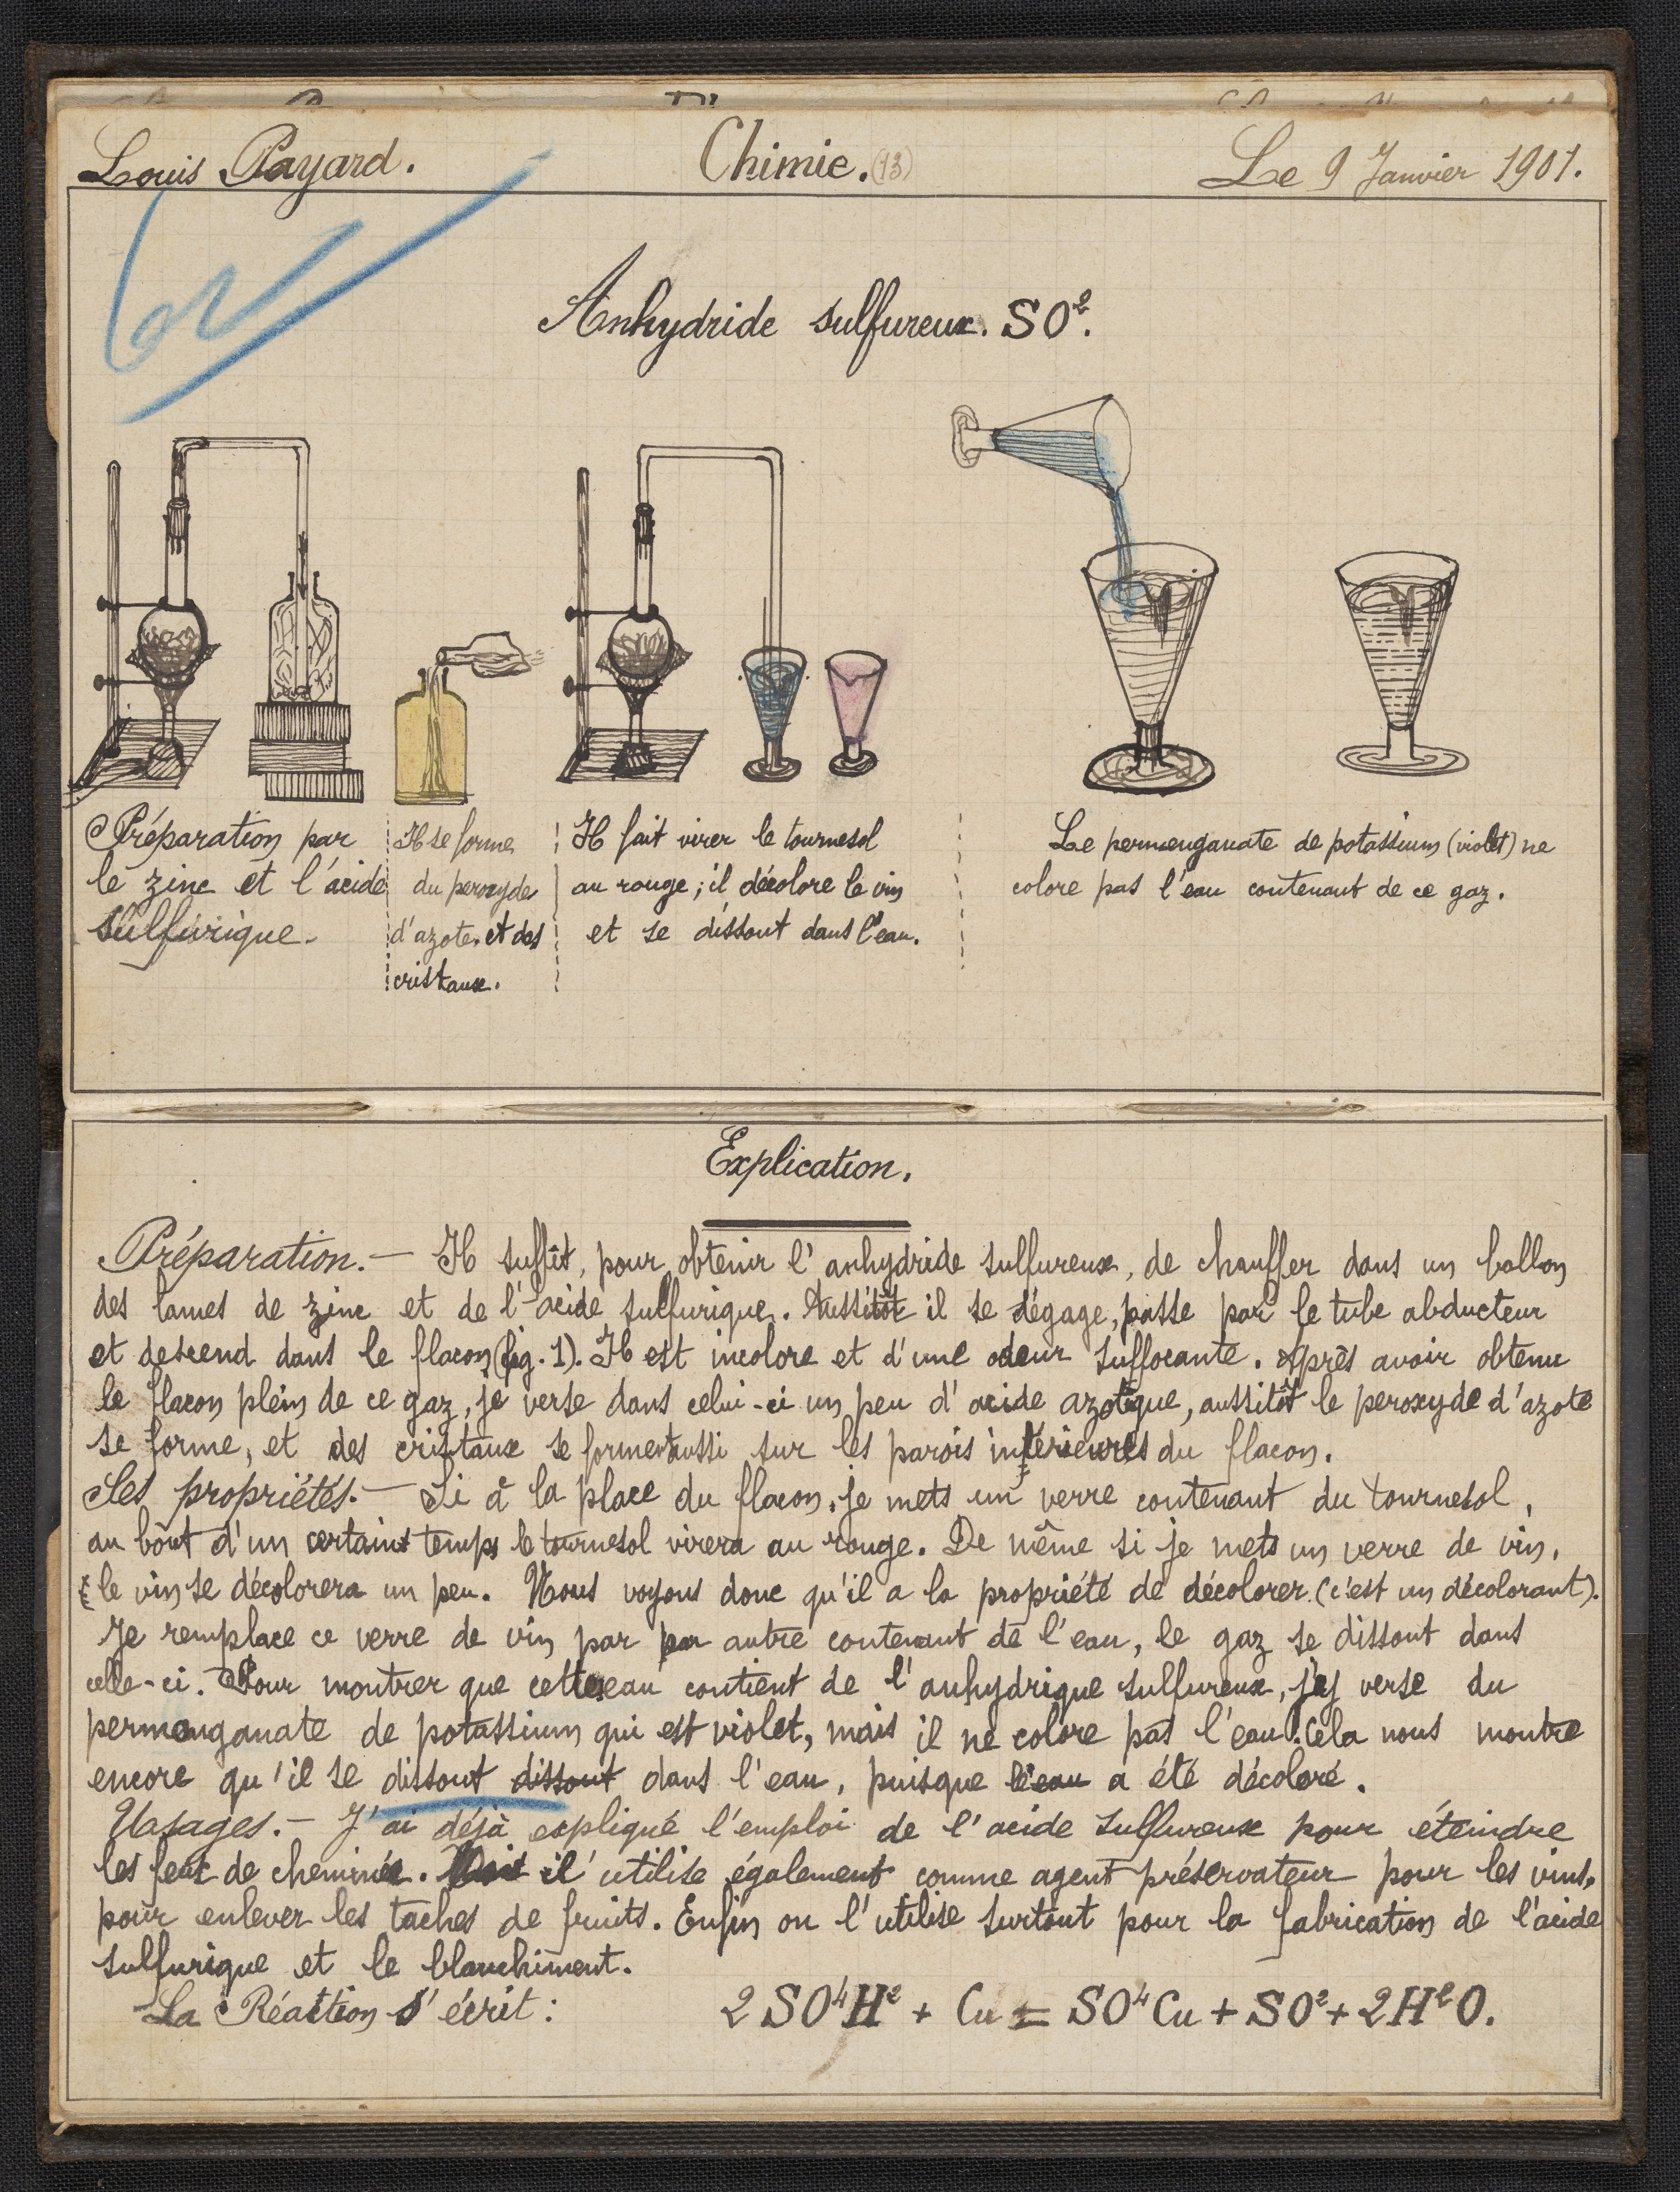 Louis Payard. Chimie. (13) Le 9 Janvier 1901.
Anhydride sulfureux. SO².
Préparation par
le zinc et l'acide
sulfurique.
Il se forme
du peroxyde
d'azote et des
cristaux.
Il fait virer le tournesol
au rouge; il décolore le vin
et se dissout dans l'eau.
Le permenganate de potassium (violet) ne
colore pas l'eau contenant de ce gaz.
Explication.
Préparation. — Il suffit, pour obtenir l'anhydride sulfureux, de chauffer dans un ballon
des lames de zinc et de l'acide sulfurique. Aussitôt il se dégage, passe par le tube abducteur
et descend dans le flacon (fig. 1). Il est incolore et d'une odeur suffocante. Après avoir obtenu
le flacon plein de ce gaz, je verse dans celui-ci un peu d'acide azotique, aussitôt le peroxyde d'azote
se forme, et des cristaux se forment aussi sur les parois intérieures du flacon.
Ses propriétés. — Si à la place du flacon, je mets un verre contenant du tournesol,
au bout d'un certains temps le tournesol virera au rouge. De même si je mets un verre de vin,
le vin se décolorera un peu. Nous voyons donc qu'il a la propriété de décolorer (c'est un décolorant).
Je remplace ce verre de vin par par autre contenant de l'eau, le gaz se dissout dans
celle-ci. Pour montrer que cette eau contient de l'anhydrique sulfureux, j'ey verse du
permenganate de potassium qui est violet, mais il ne colore pas l'eau. Cela nous montre
encore qu'il se dissout dissout dans l'eau, puisque l'eau a été décoloré.
Usages. — J'ai déjà expliqué l'emploi de l'acide sulfureux pour éteindre
les feux de cheminée. il utilise également comme agent préservateur pour les vins,
pour enlever les taches de fruits. Enfin on l'utilise surtout pour la fabrication de l'acide
sulfurique et le blanchiment.
La Réaction s'écrit: 2 SO⁴H² + Cu = SO⁴Cu + SO² + 2H²O.